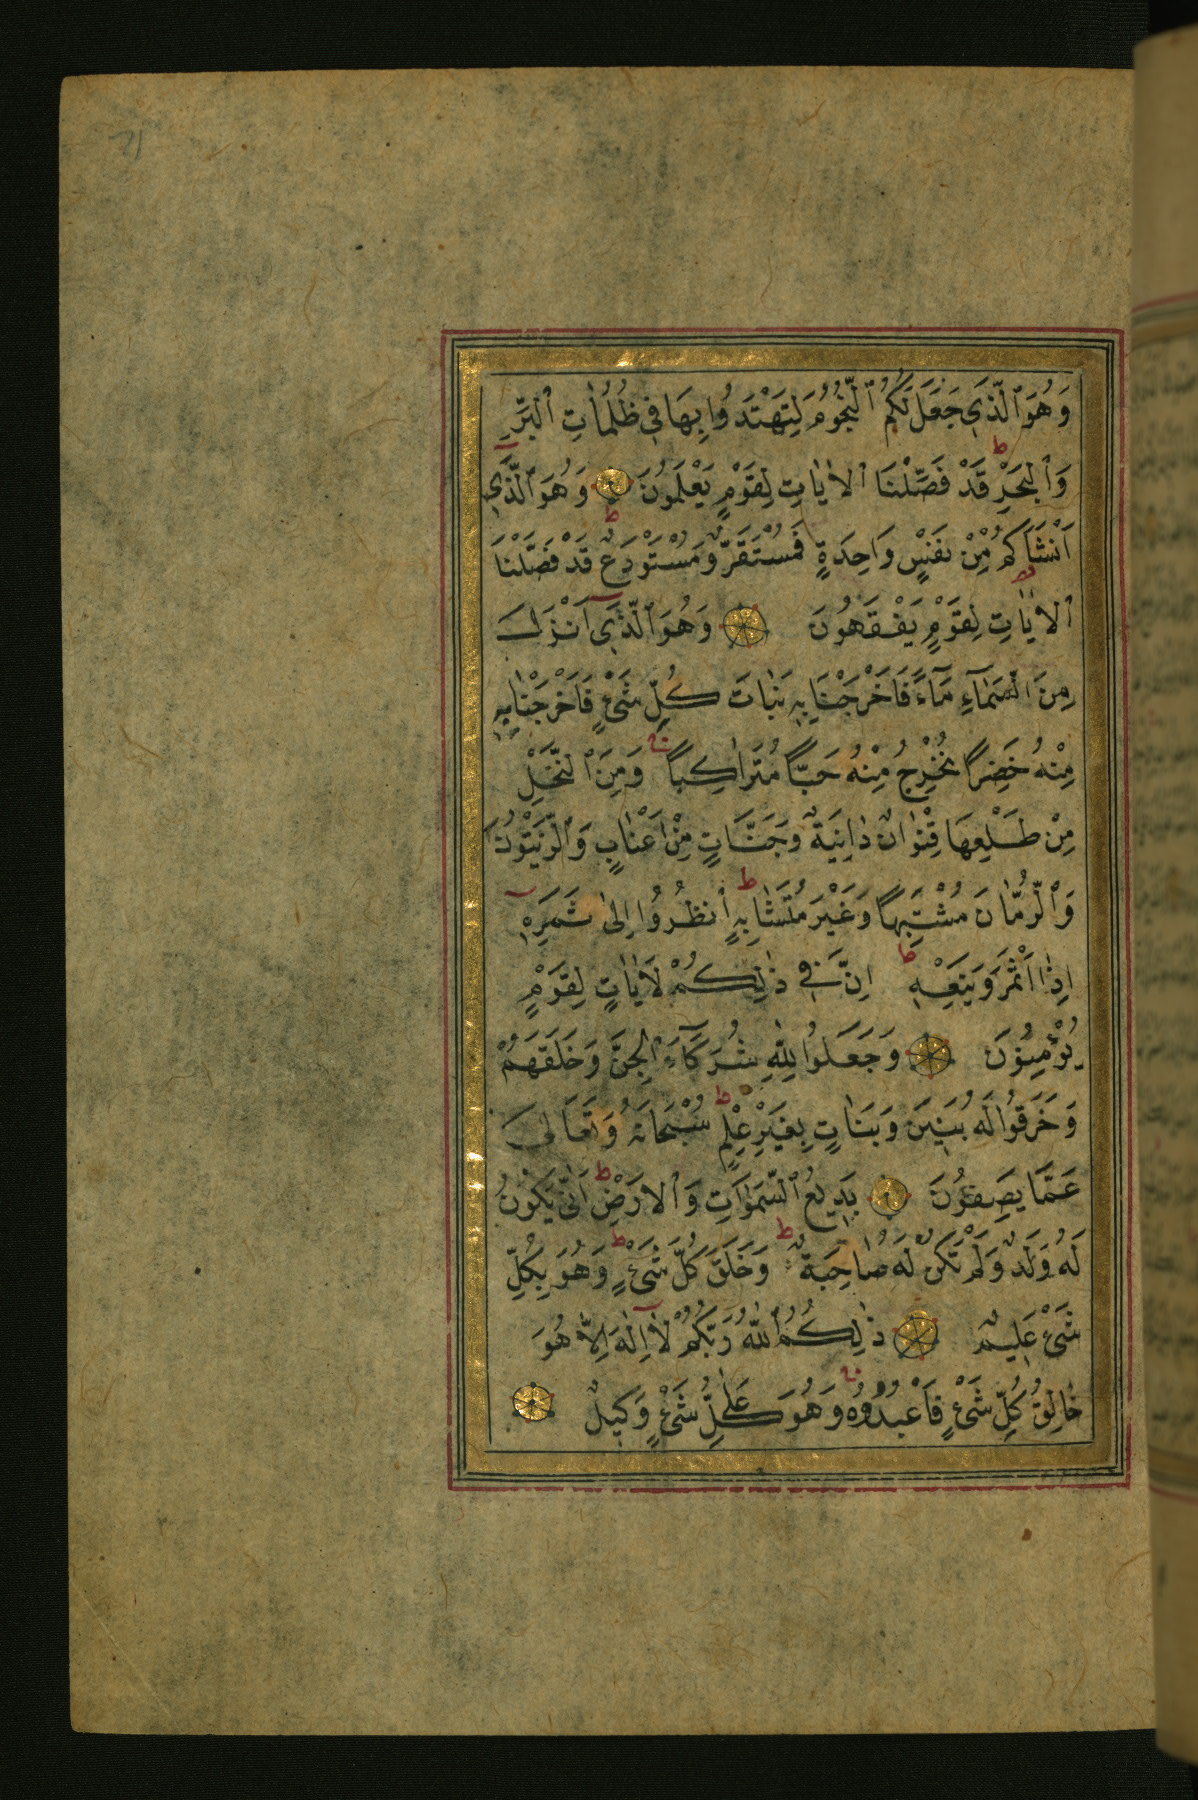 وَهُوَ ٱلَّذِي جَعَلَ لَكُمُ ٱلنُّجُومَ لِتَهْتَدُوا بِهَا فِي ظُلُمَاتِ ٱلْبَرِّ
وَٱلْبَحْرِ ط قَدْ فَصَّلْنَا ٱلْاٰيَاتِ لِقَوْمٍ يَعْلَمُونَ وَهُوَ ٱلَّذِي
اَنْشَاَكُمْ مِنْ نَفْسٍ وَاحِدَةٍ فَمُسْتَقَرٌّ وَمُسْتَوْدَعٌ ط قَدْ فَصَّلْنَا
ٱلْاٰيَاتِ لِقَوْمٍ يَفْقَهُونَ وَهُوَ ٱلَّذِي اَنْزَلَ
مِنَ ٱلسَّمَآءِ مَآءً فَاَخْرَجْنَا بِهِ نَبَاتَ كُلِّ شَيْءٍ فَاَخْرَجْنَا بِهِ
مِنْهُ خَضِرًا نُخْرِجُ مِنْهُ حَبًّا مُتَرَاكِبًا وَمِنَ ٱلنَّخْلِ
مِنْ طَلْعِهَا قِنْوَانٌ دَانِيَةٌ وَجَنَّاتٍ مِنْ اَعْنَابٍ وَٱلزَّيْتُونَ
وَٱلرُّمَّانَ مُشْتَبِهًا وَغَيْرَ مُتَشَابِهٍ ط اُنْظُرُوا اِلٰى ثَمَرِهِ
اِذَا اَثْمَرَ وَيَنْعِهِ ط اِنَّ فِي ذٰلِكُمْ لَاٰيَاتٍ لِقَوْمٍ
يُؤْمِنُونَ وَجَعَلُوا لِلّٰهِ شُرَكَآءَ ٱلْجِنَّ وَخَلَقَهُمْ
وَخَرَقُوا لَهُ بَنِينَ وَبَنَاتٍ بِغَيْرِ عِلْمٍ ط سُبْحَانَهُ وَتَعَالٰى
عَمَّا يَصِفُونَ بَدِيعُ ٱلسَّمٰوَاتِ وَٱلْاَرْضِ ط اَنّٰى يَكُونُ
لَهُ وَلَدٌ وَلَمْ تَكُنْ لَهُ صَاحِبَةٌ ط وَخَلَقَ كُلَّ شَيْءٍ ط وَهُوَ بِكُلِّ
شَيْءٍ عَلِيمٌ ذٰلِكُمُ ٱللّٰهُ رَبُّكُمْ لَا اِلٰهَ اِلَّا هُوَ
خَالِقُ كُلِّ شَيْءٍ فَاعْبُدُوهُ وَهُوَ عَلٰى كُلِّ شَيْءٍ وَكِيلٌ